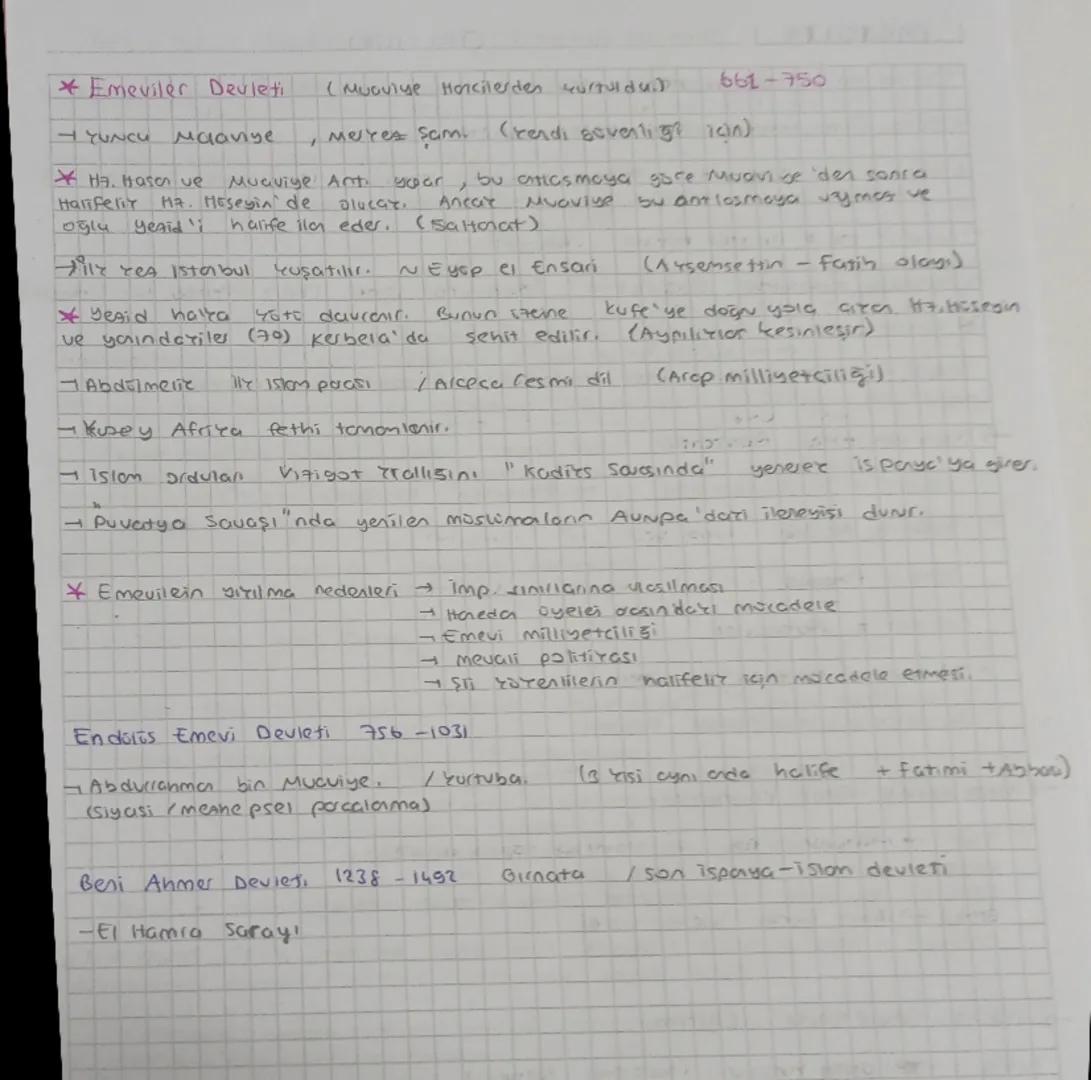 * Emeviler Devleti (Muaviye Haricilerden kurtuldu.) 661-750
→ kurucu Muaviye, Merkez Şam. (kendi güvenliği için)
* Hz. Hasan ve Muaviye Ant. yapar, bu antlaşmaya göre Muaviye'den sonra
Halifelik Hz. Hüseyin'de olucak. Ancak Muaviye bu antlaşmaya uymaz ve
oğlu Yezid'i halife ilan eder. (Saltanat)
→ ilk kez İstanbul kuşatılır. ~ Eyüp el Ensari (Akşemsettin - Fatih olayı)
* Yezid halka kötü davranır. Bunun üzerine Kufe'ye doğru yola çıkan Hz. Hüseyin
ve yanındakiler (70) Kerbela'da şehit edilir. (Ayrılıklar kesinleşir)
→ Abdülmelik ilk İslam parası / Arapça resmi dil (Arap milliyetçiliği)
→ Kuzey Afrika fethi tamamlanır.
→ İslam orduları Vizigot krallığını "Kadiks Savaşında" yenerek İspanya'ya girer.
→ "Puvatya Savaşı"nda yenilen müslümanların Avrupa'daki ilerleyişi durur.
* Emevilerin yıkılma nedenleri → imp. sınırlarına ulaşılması
→ Hanedan üyeleri arasındaki mücadele
→ Emevi milliyetçiliği
→ mevali politikası
→ Şii kökenlilerin halifelik için mücadele etmesi.
Endülüs Emevi Devleti 756-1031
→ Abdurrahman bin Muaviye. / Kurtuba. (3 kişi aynı anda halife + Fatımi + Abbasi)
(siyasi / mezhepsel parçalanma)
Beni Ahmer Devleti 1238-1492 Gırnata / son İspanya-İslam devleti
- El Hamra Sarayı